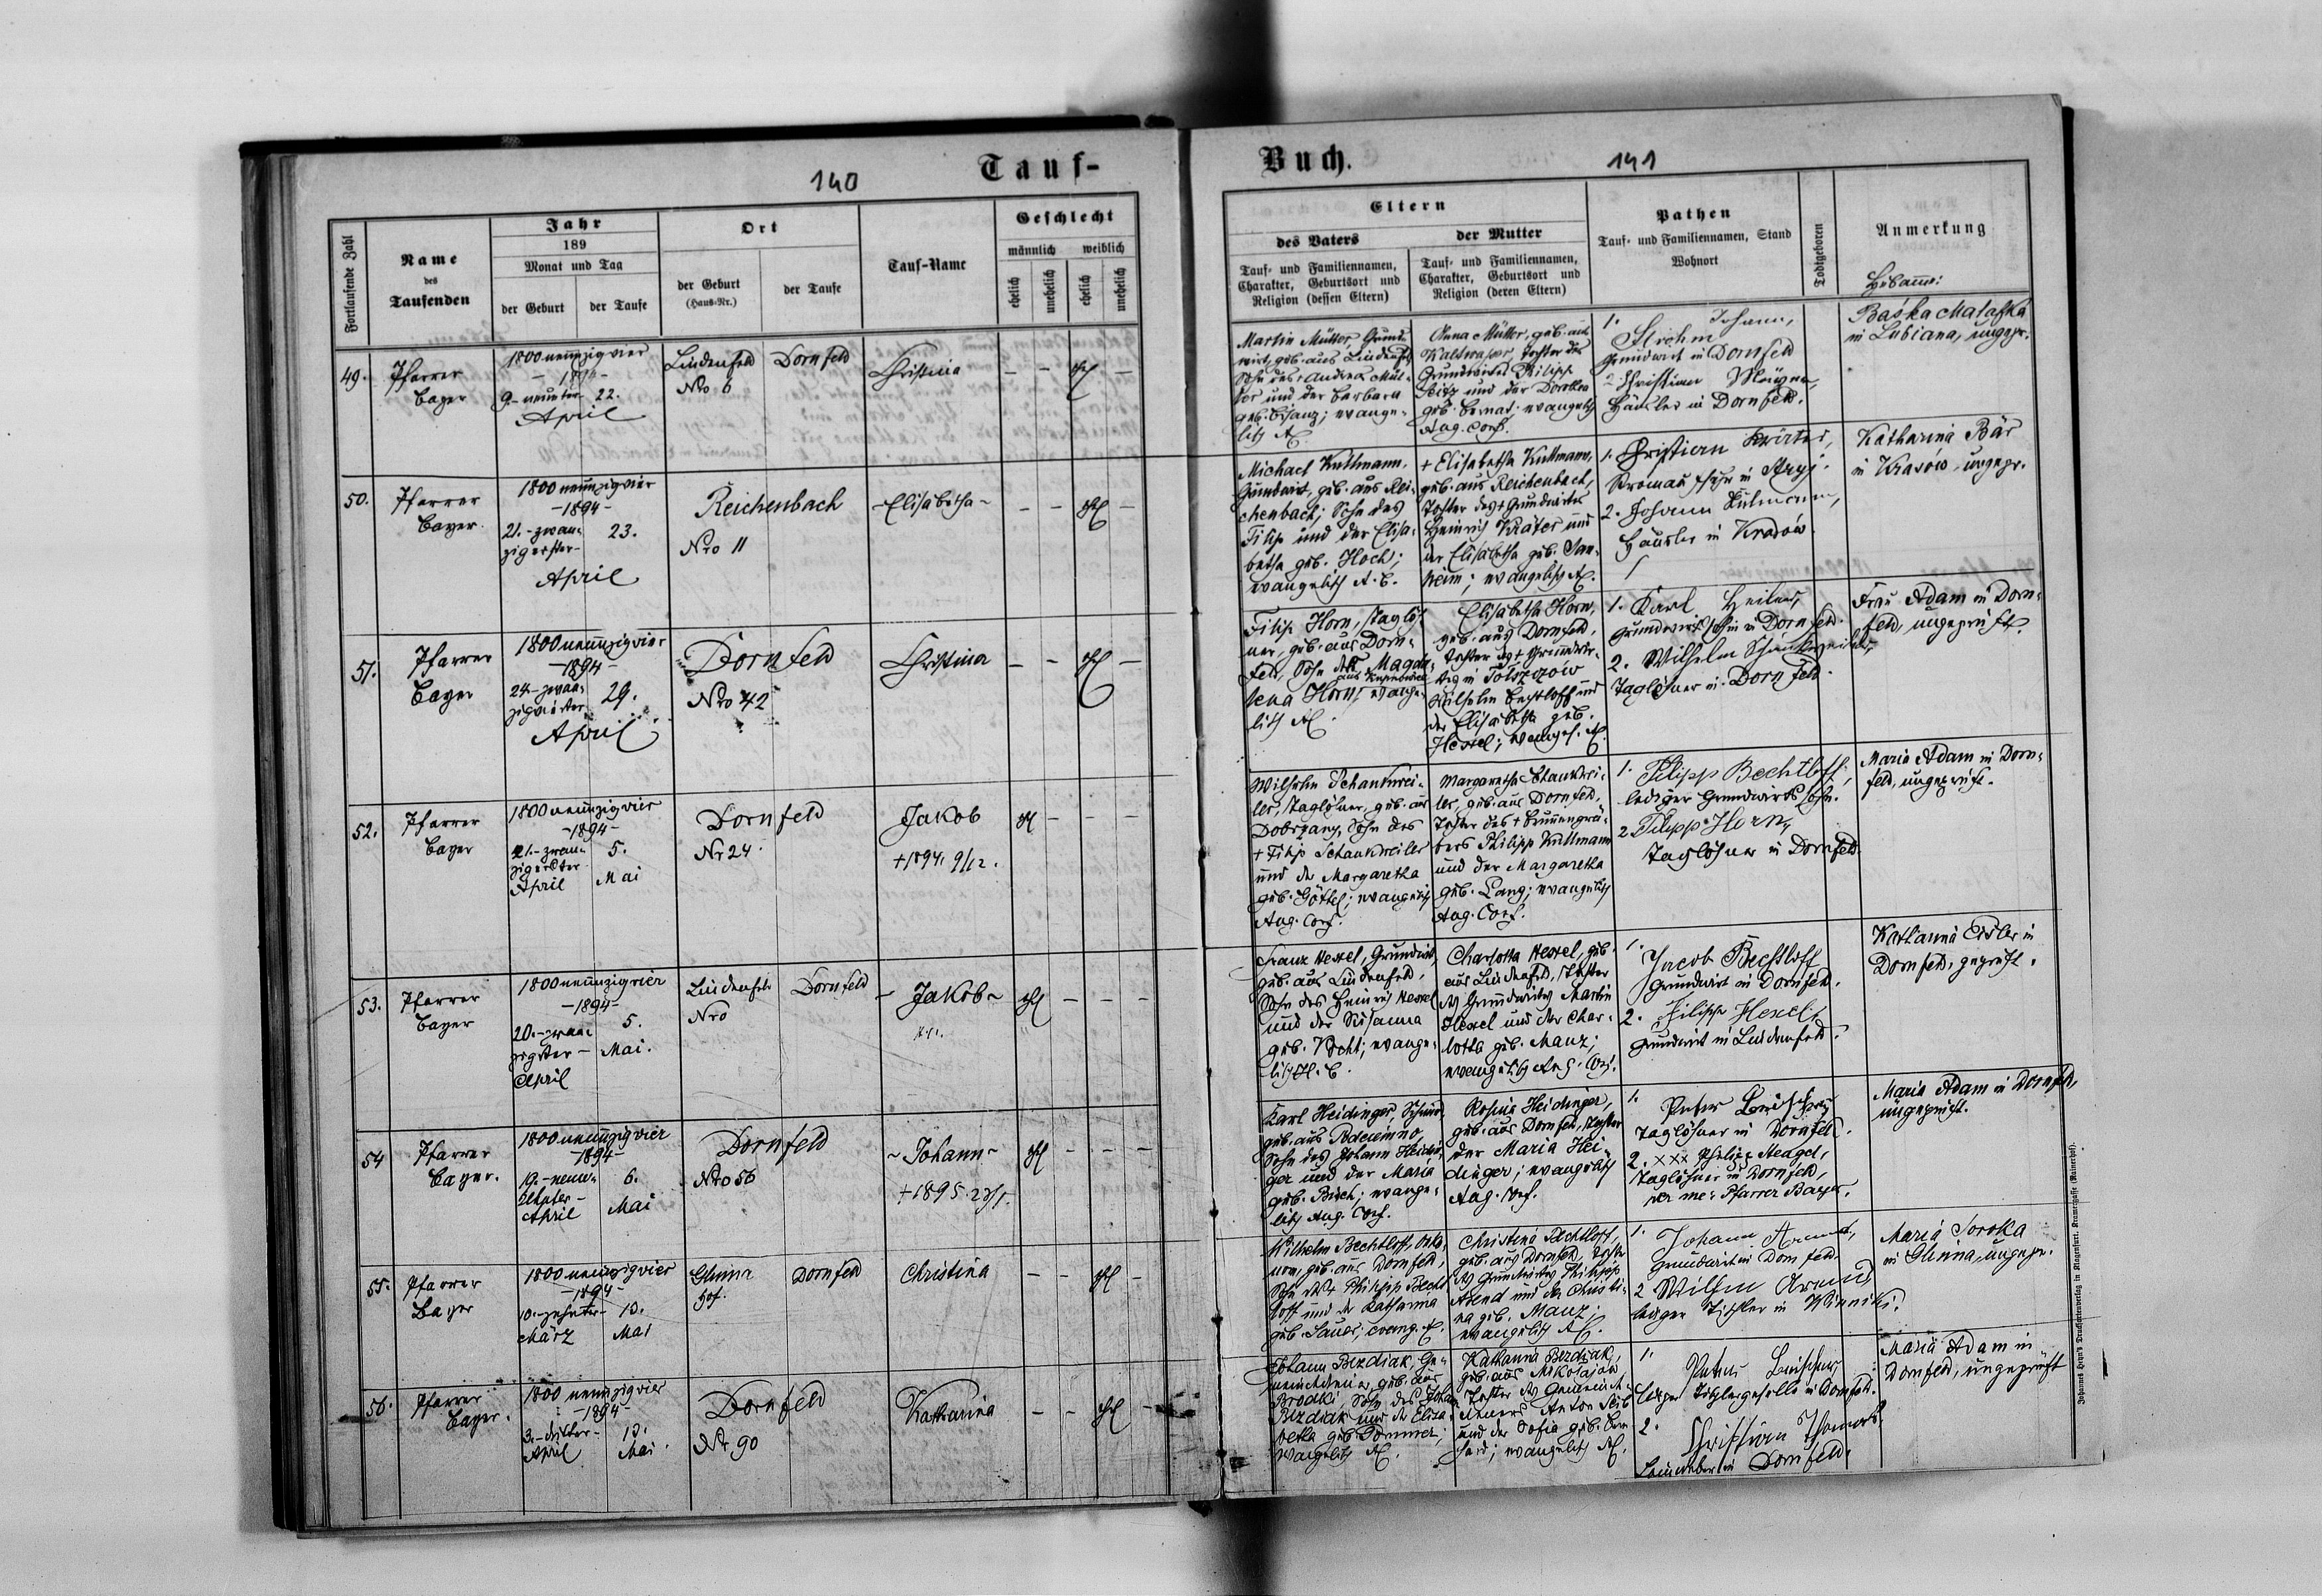 140
Tauf-
Fortlaufende Zahl
Name
des
Taufenden
Jahr
189
Monat und Tag
der Geburt
der Taufe
Ort
der Geburt
(Haus-Nr.)
der Taufe
Tauf-Name
Geschlecht
männlich
weiblich
ehelich
unehelich
ehelich
unehelich
49.
Pfarrer
Bayer
1800 neunzig vier
-1894-
9.- neunter- 22.
April
Lindenfeld
Nro 6
Dornfeld
Christina
50.
Pfarrer
Bayer.
1800 neunzig vier
-1894-
21.- zwan-
zigerster-
23.
April
Reichenbach
Nro 11
-Elisabetha-
51.
Pfarrer
Bayer
1800 neunzig vier
-1894-
24.- zwan-
zigvierter
29.
April
Dornfeld
Nro 42
Christina
52.
Pfarrer
Bayer
1800 neunzig vier
-1894-
21.- zwan-
zigerster
April
5.
Mai
Dornfeld
Nr 24.
Jakob
+1894. 9/12.
53.
Pfarrer
Bayer
1800 neunzig vier
-1894-
20.- zwan-
zigster-
April
5.
Mai.
Lindenfeld
Nro
Dornfeld
- Jakob -
54
Pfarrer
Bayer.
1800 neunzig vier
-1894-
19.- neun-
zehnter-
April
6.
Mai
Dornfeld
Nro 56
- Johann -
+1895. 23/1.
55.
Pfarrer
Bayer
1800 neunzig vier
-1894-
10.- zehnter- 13.
März
Mai
Glinna
Hof.
Dornfeld
Christina
56.
Pfarrer
Bayer.
1800 neunzig vier
-1894-
3.- dritter-
April
13.
Mai.
Dornfeld
Nr. 90
Katharina
Buch.
141
Eltern
des Vaters
Tauf- und Familiennamen,
Charakter, Geburtsort und
Religion (dessen Eltern)
der Mutter
Tauf- und Familiennamen,
Charakter, Geburtsort und
Religion (deren Eltern)
Pathen
Tauf- und Familiennamen, Stand
Wohnort
Todtgeboren
Anmerkung
Hebamme:
Martin Müller, Grund-
wirt, geb. aus Lindenfeld
Sohn des + Andreas Mül-
ler und der Barbara
geb. ; evange-
lisch AC
Anna Müller, geb. aus
Kaltwasser, Tochter des
Grundwirtes Philipp
und der Dorothea
geb. Bernat; evangelisch
Aug. Conf.
1. Johann,
Strohm
Grundwirt in Dornfeld
2. Christian
Häusler in Dornfeld.
Baśka Matafka
in Lubiana, ungepr.
Michael Kuttmann,
Grundwirt, geb. aus Rei-
chenbach; Sohn des
Filip und der Elisa-
betha geb. Hoch;
evangelisch A. C.
+ Elisabetha Kuttmann,
geb. aus Reichenbach,
Tochter des + Grundwirtes
Heinrich Kräter und
der Elisabetha geb.
; evangelisch AC.
1. Christian
in Stryj.
2. Johann Kutmann,
Häusler in Krasów.
Katharina Bär
in Krasów, ungepr.
Filip Horn, Taglöh-
ner, geb. aus Dorn-
feld, Sohn der Magda-
lena Horn, evange-
lisch AC.
Elisabetha Horn,
geb. aus Dornfeld,
Tochter des + Grundwir-
tes in Tołszczów
Wilhelm Bechtloff und
der Elisabetha geb.
Hexel; evangel. AC.
1. Karl
Grundwirtssohn in Dornfeld.
2. Wilhelm Schankweiler,
Taglöhner in Dornfeld.
Frau Adam in Dorn-
feld, ungeprüft.
Wilhelm Schankwei-
ler, Taglöhner, geb. aus
Dobrzany, Sohn des
+ Filip Schankweiler
und der Margaretha
geb. Göttel; evangelisch
Aug. Conf.
Margaretha Schankwei-
ler, geb. aus Dornfeld,
Tochter des + Brunnengrä-
bers Philipp Kuttmann
und der Margaretha
geb. Lang; evangelisch
Aug. Conf.
1. Filipp Bechtloff,
lediger Grundwirtssohn.
2. Filipp Horn,
Taglöhner in Dornfeld.
Maria Adam in Dorn-
feld, ungeprüft.
Franz Hexel, Grundwirt,
geb. aus Lindenfeld,
Sohn des Heinrich Hexel
und der Susanna
geb. Kocht; evange-
lisch H. C.
Charlotta Hexel, geb.
aus Lindenfeld, Tochter
des Grundwirtes Martin
Hexel und der Char-
lotta geb. Manz;
evangelisch Aug. Conf.
1.
Jacob Bechtloff
Grundwirt in Dornfeld.
2. Filipp Hexel,
Grundwirt in Lindenfeld.
Katharina Eisler in
Dornfeld, geprüft.
Karl Heidinger, Schmied
geb. aus
Sohn des Johann Heidin-
ger und der Maria
geb. Bisch; evange-
lisch Aug. Conf.
Rosina Heidinger,
geb. aus Dornfeld, Tochter
der Maria Hei-
dinger; evangelisch
Aug. Conf.
1.
Peter
Taglöhner in Dornfeld.
2. xxx Philipp
Taglöhner in Dornfeld,
per me: Pfarrer Bayer.
Maria Adam in Dornfeld,
ungeprüft.
Wilhelm Bechtloff, Oeko-
nom, geb. aus Dornfeld,
Sohn des + Philipp Becht-
loff und der Katharina
geb. Sauer; evang. AC.
Christina Bechtloff,
geb. aus Dornfeld, Tochter
des Grundwirtes Philipp
Arend und der Christi-
na geb. Manz;
evangelisch AC.
1. Johann Arend,
Grundwirt in Dornfeld.
2 Wilhelm Arend,
lediger Tischler in Winniki.
Maria Soroka
in Glinna, ungepr.
Johann Bezdiak, Ge-
meindediener, geb. aus
Brodki, Sohn des Johann
Bezdiak und der Elisa-
betha geb. Dommer;
evangelisch AC.
Katharina Bezdiak,
geb. aus Mikolajow,
Tochter des Gemeinde-
dieners Anton
und der Sofia geb.
; evangelisch AC.
1.
Peter
lediger Tischlergeselle in Dornfeld.
2.
Christian Thomas,
Leinweber in Dornfeld.
Maria Adam in
Dornfeld, ungeprüft
Johannes Heyn's Drucksortenverlag in Klagenfurt, Kramergasse (Rainerhof).